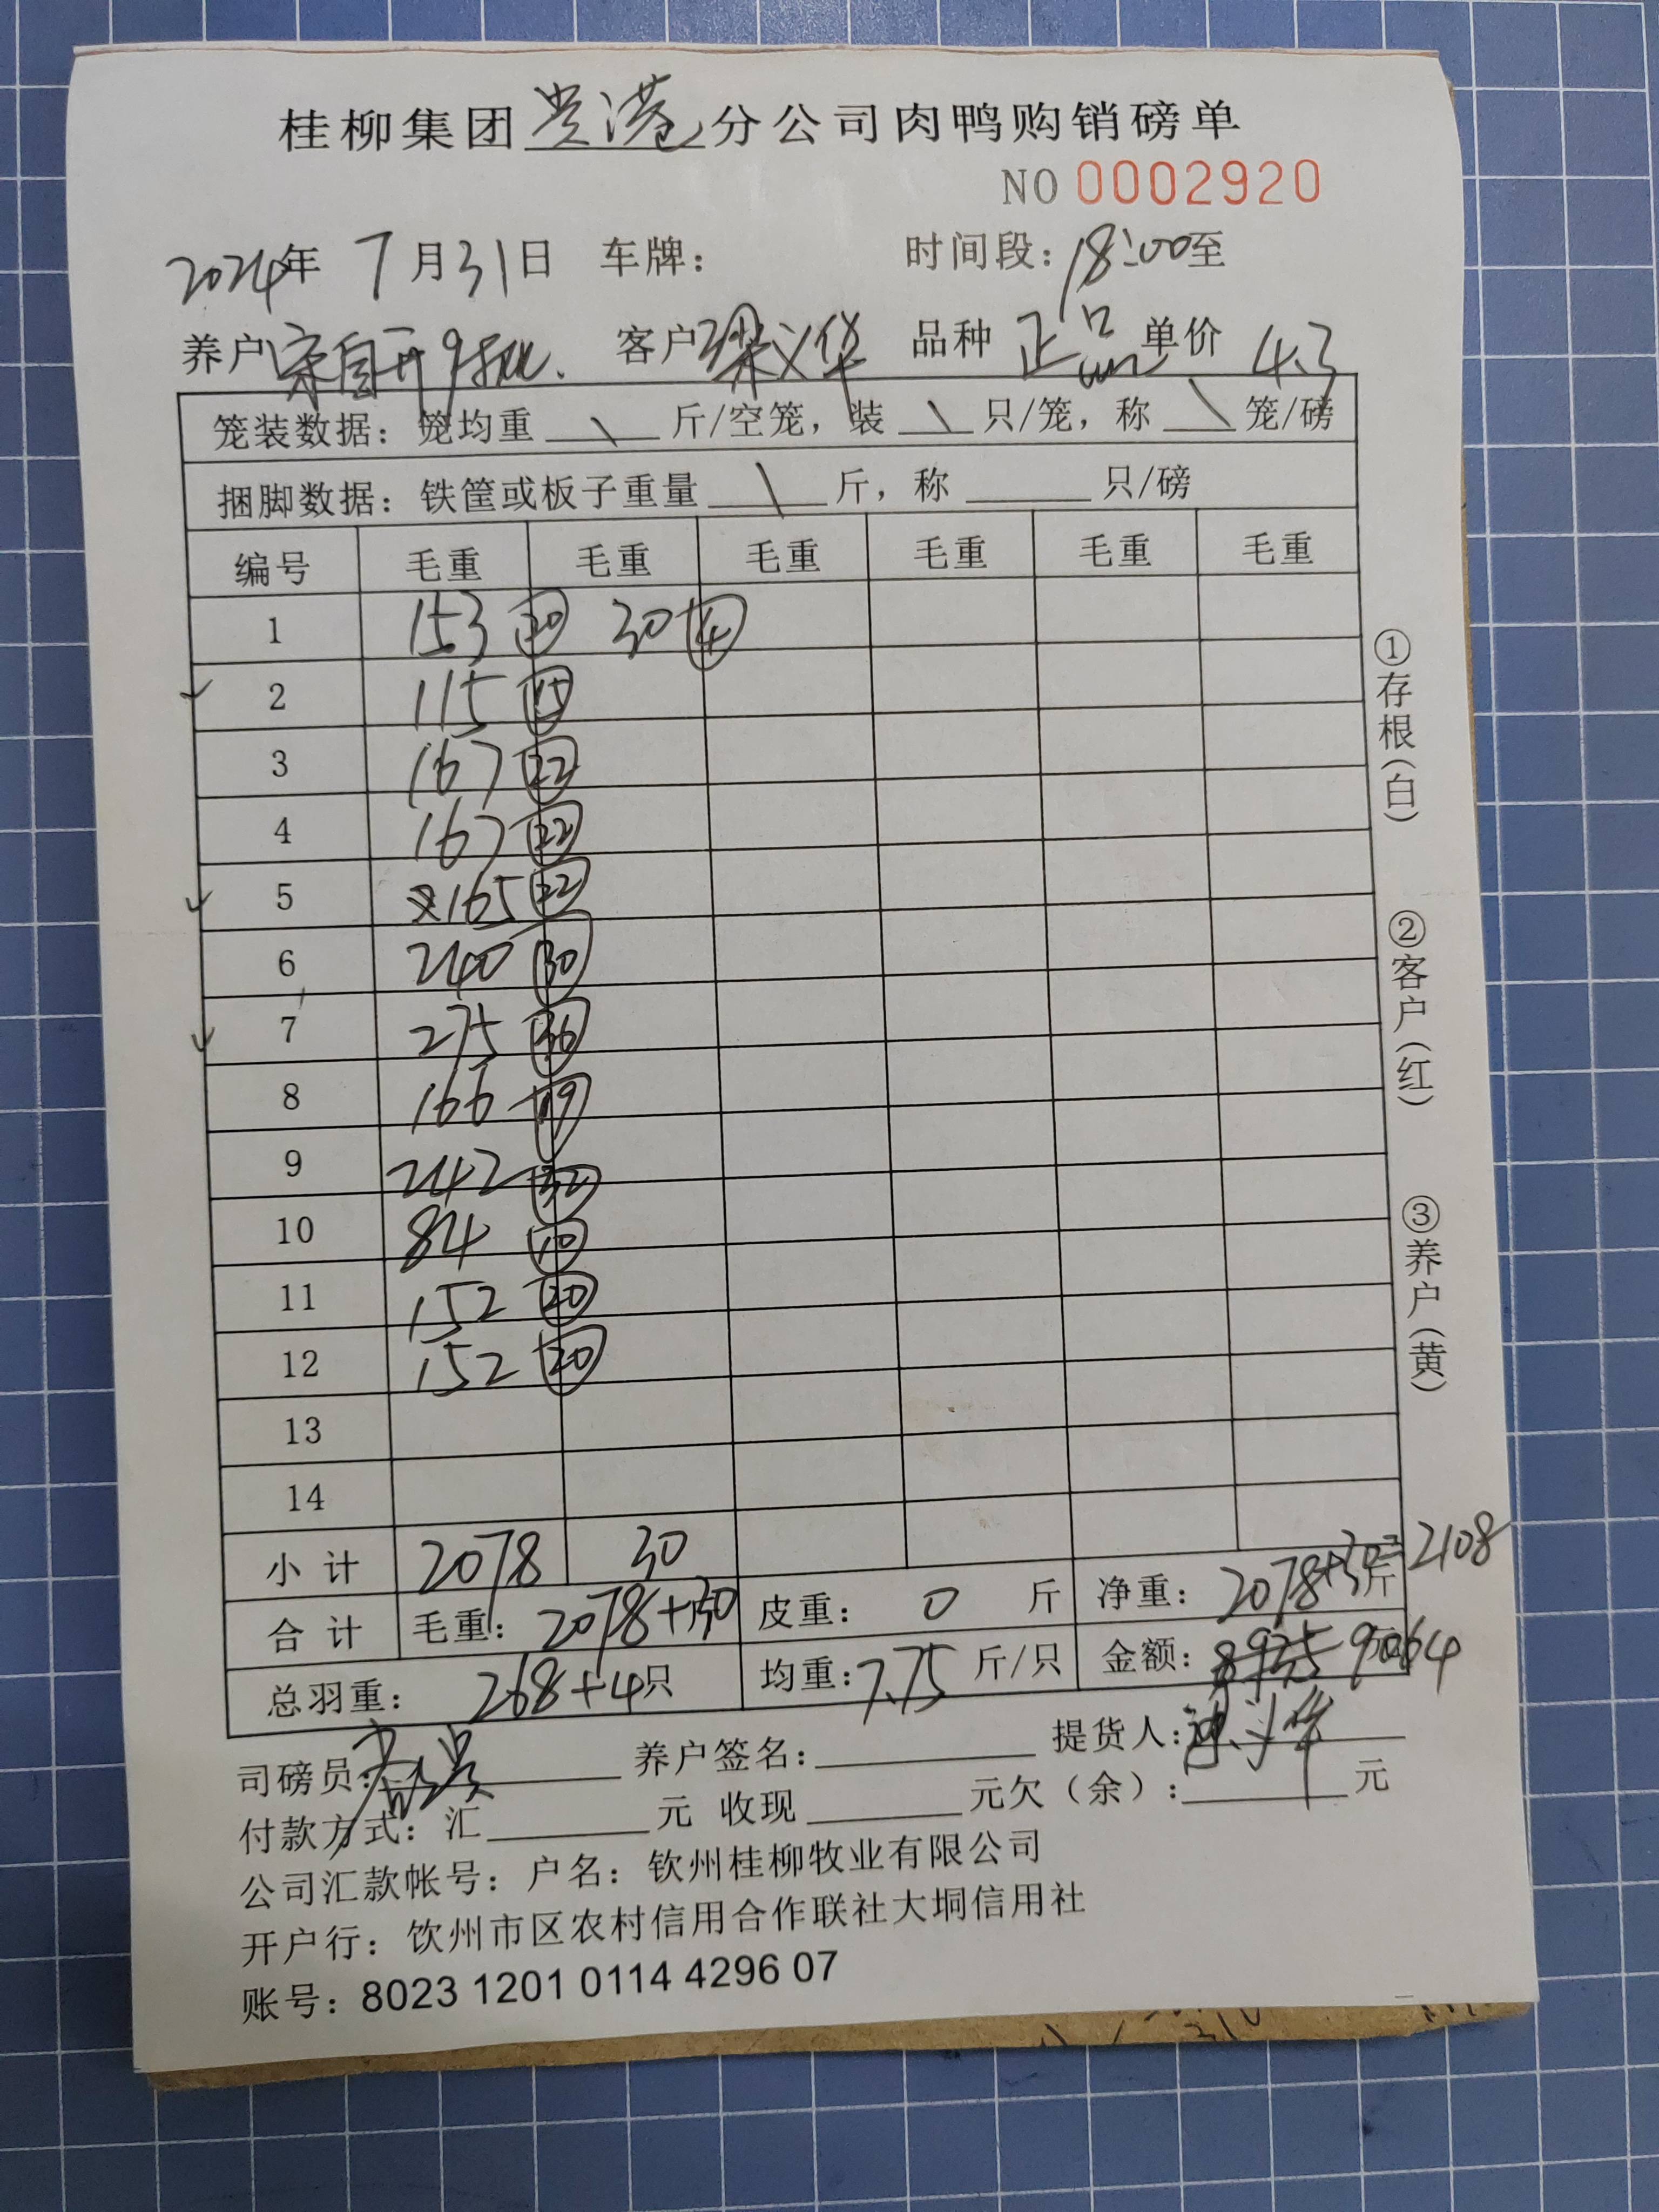 桂柳集团贵港分公司肉鸭购销磅单
NO 0002920
2024年 7月31日 车牌： 时间段：18:00至
养户宋自开9批. 客户梁义华 品种 正品 单价 4.3
笼装数据：笼均重 \ 斤/空笼，装 \ 只/笼，称 \ 笼/磅
捆脚数据：铁筐或板子重量 \ 斤，称 只/磅
编号 毛重 毛重 毛重 毛重 毛重 毛重
1 153 20 30 4
2 115 15
3 167 22
4 167 22
5 165 22
6 240 30
7 275 36
8 166 19
9 242 32
10 84 10
11 152 20
12 152 20
13
14
小计 2078 30
合计 毛重：2078+30 皮重：0 斤 净重：2078+30=2108 斤
总羽重：268+4只 均重：7.75 斤/只 金额：8935 9064 元
司磅员： 养户签名： 提货人：梁义华
付款方式：汇 元 收现 元欠（余）： 元
公司汇款帐号：户名：钦州桂柳牧业有限公司
开户行：钦州市区农村信用合作联社大垌信用社
账号：8023 1201 0114 4296 07
①存根（白）
②客户（红）
③养户（黄）